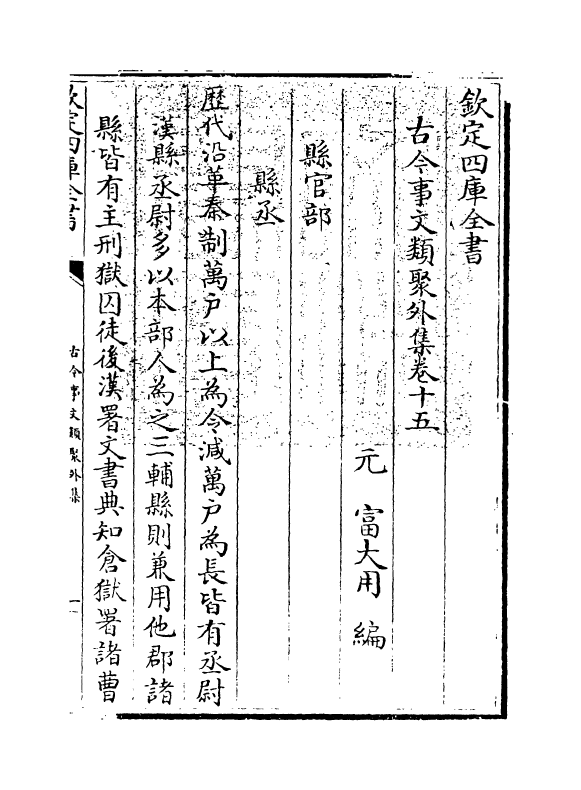 欽定四庫全書
古今事文類聚外集卷十五
元　富大用　編
縣官部
縣丞
歴代沿革秦制萬户以上為令減萬户為長皆有丞尉
漢縣丞尉多以本部人為之三輔縣則兼用他郡諸
縣皆有主刑獄囚徒後漢署文書典知倉獄署諸曹
欽定四庫全書
古今事文類聚外集
一